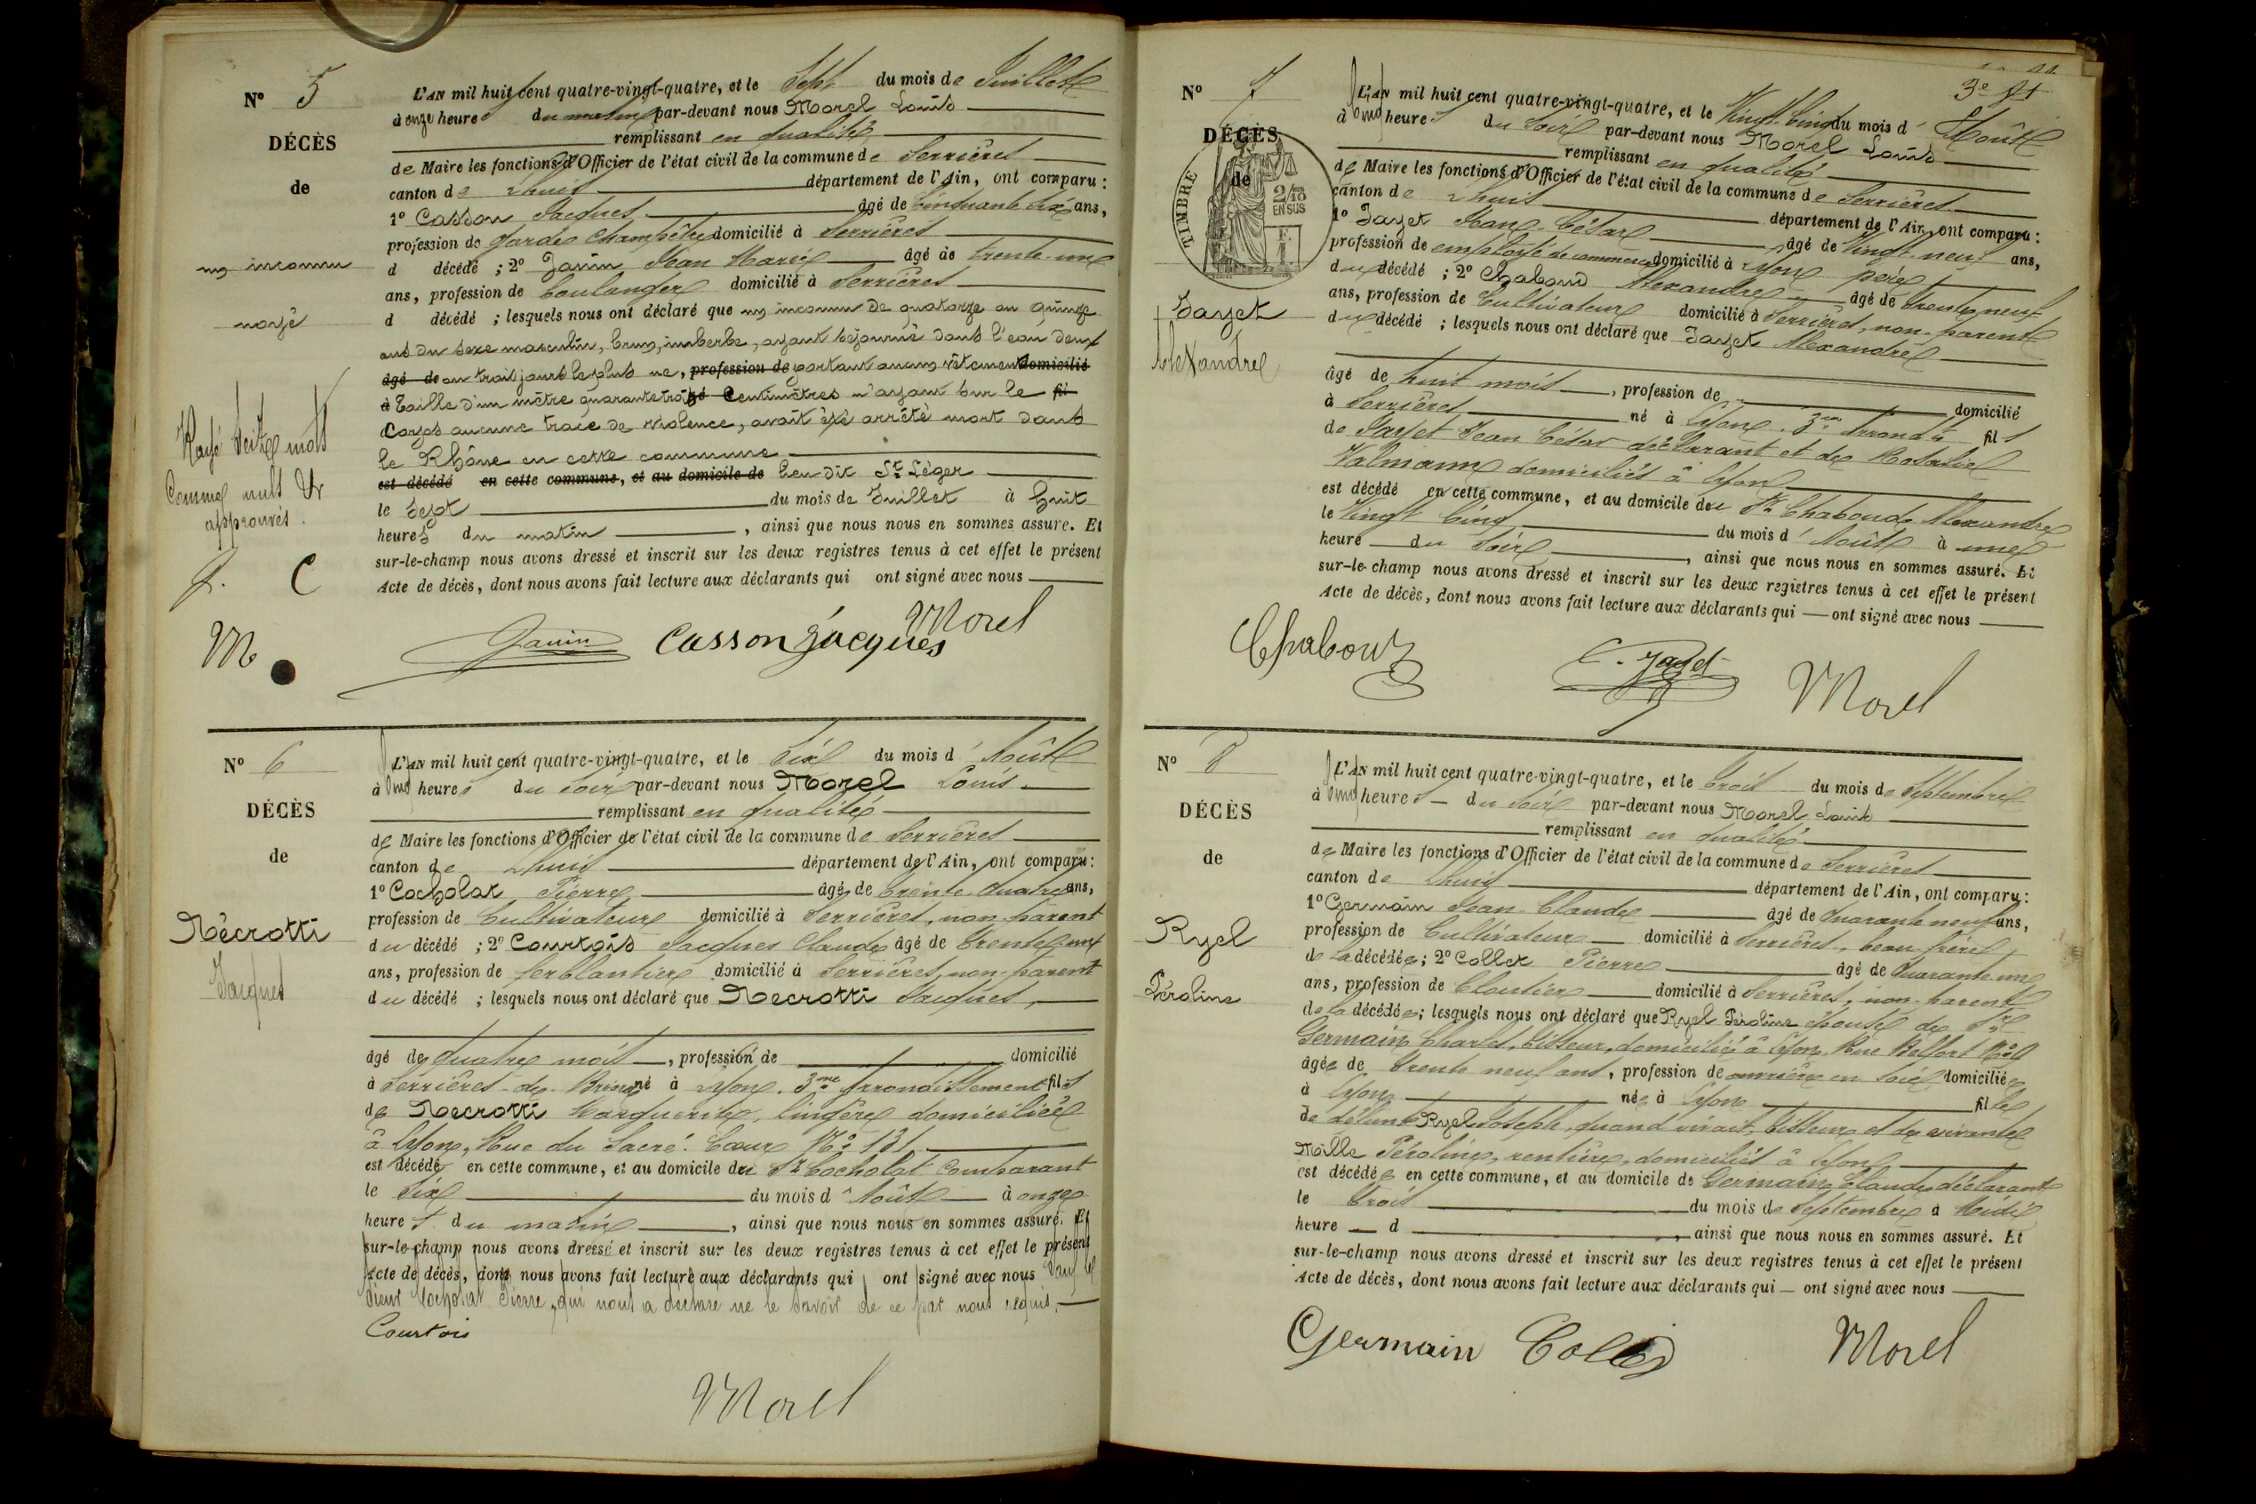 N° 5
DÉCÈS
de
un inconnu
noyé
Rayé seize mots
comme nuls et
approuvés.
J. C
M
L'AN mil huit cent quatre-vingt-quatre, et le Sept du mois de Juillet
à onze heures du matin par-devant nous Morel Louis
remplissant en qualité
de Maire les fonctions d'Officier de l'état civil de la commune de Serrières
canton de Lhuis département de l'Ain, ont comparu :
1° Casson Jacques âgé de Cinquante six ans,
profession de garde champêtre domicilié à Serrières
d décédé ; 2° Janin Jean Marie âgé de trente-un
ans, profession de boulanger domicilié à Serrières
d décédé ; lesquels nous ont déclaré que un inconnu de quatorze ou quinze
ans du sexe masculin, brun, imberbe, ayant séjourné dans l'eau deux
âgé de ou trois jours le plus nu, profession de portant aucun vêtement domicilié
à taille d'un mètre quarante trois né centimètres n'ayant sur le fil
corps aucune trace de violence, avait été arrêté mort dans
le Rhône en cette commune
est décédé en cette commune, et au domicile de lieu dit St Léger
le Sept du mois de Juillet à huit
heures du matin , ainsi que nous nous en sommes assuré. Et
sur-le-champ nous avons dressé et inscrit sur les deux registres tenus à cet effet le présent
Acte de décès, dont nous avons fait lecture aux déclarants qui ont signé avec nous
Janin Casson Jacques Morel
N° 6
DÉCÈS
de
Nécrotti
Jacques
L'AN mil huit cent quatre-vingt-quatre, et le Six du mois d' Août
à cinq heures du soir par-devant nous Morel Louis
remplissant en qualité
de Maire les fonctions d'Officier de l'état civil de la commune de Serrières
canton de Lhuis département de l'Ain, ont comparu :
1° Cocholat Pierre âgé de trente quatre ans,
profession de Cultivateur domicilié à Serrières, non-parent
du décédé ; 2° Courtois Jacques Claude âgé de trente-un
ans, profession de ferblantier domicilié à Serrières, non-parent
du décédé ; lesquels nous ont déclaré que Necrotti Jacques,
âgé de quatre mois , profession de domicilié
à Serrières-de-Briord né à Lyon 3me Arrondissement fils
de Necrotti Marguerite, lingère domiciliée
à Lyon, Rue du Sacré-Cœur N° 131.
est décédé en cette commune, et au domicile du Sr Cocholat Comparant
le Six du mois d' Août à onze
heures du matin , ainsi que nous nous en sommes assuré. Et
sur-le-champ nous avons dressé et inscrit sur les deux registres tenus à cet effet le présent
Acte de décès, dont nous avons fait lecture aux déclarants qui ont signé avec nous sauf le
sieur Cocholat Pierre, qui nous a déclaré ne le savoir de ce par nous requis.
Courtois
Morel
3e
N° 7
DÉCÈS
de
TIMBRE
2/10
EN SUS
Jayet
Alexandre
L'AN mil huit cent quatre-vingt-quatre, et le Vingt-Cinq du mois d' Août
à cinq heures du soir par-devant nous Morel Louis
remplissant en qualité
de Maire les fonctions d'Officier de l'état civil de la commune de Serrières
canton de Lhuis département de l'Ain, ont comparu :
1° Jayet Jean César âgé de Vingt-neuf ans,
profession de employé de commerce domicilié à Lyon père
du décédé ; 2° Chaboud Alexandre âgé de trente neuf
ans, profession de Cultivateur domicilié à Serrières, non-parent
du décédé ; lesquels nous ont déclaré que Jayet Alexandre
âgé de huit mois , profession de domicilié
à Serrières né à Lyon 3me Arrondt fils
de Jayet Jean César déclarant et de Rosalie
Valmann domiciliés à Lyon
est décédé en cette commune, et au domicile du Sr Chaboud Alexandre
le Vingt Cinq du mois d' Août à une
heure du soir , ainsi que nous nous en sommes assuré. Et
sur-le-champ nous avons dressé et inscrit sur les deux registres tenus à cet effet le présent
Acte de décès, dont nous avons fait lecture aux déclarants qui ont signé avec nous
Chaboud C. Jayet Morel
N° 8
DÉCÈS
de
Ryel
Péroline
L'AN mil huit cent quatre-vingt-quatre, et le trois du mois de Septembre
à cinq heures du soir par-devant nous Morel Louis
remplissant en qualité
de Maire les fonctions d'Officier de l'état civil de la commune de Serrières
canton de Lhuis département de l'Ain, ont comparu :
1° Germain Jean-Claude âgé de Quarante neuf ans,
profession de Cultivateur domicilié à Serrières, beau-frère
de la décédée ; 2° Collet Pierre âgé de Quarante-un
ans, profession de Cloutier domicilié à Serrières, non-parent
de la décédée ; lesquels nous ont déclaré que Ryel Péroline épouse de Sr
Germain Charles, tisseur, domicilié à Lyon Rue Belfort N°
âgée de trente neuf ans, profession de ouvrière en soie, domiciliée
à Lyon née à Lyon fille
de défunt Ryel Joseph, quand vivait, tisseur et de vivante
Mille Péroline, rentière, domiciliés à Lyon
est décédée en cette commune, et au domicile de Germain Claude déclarant
le trois du mois de Septembre à Midi
heure d , ainsi que nous nous en sommes assuré. Et
sur-le-champ nous avons dressé et inscrit sur les deux registres tenus à cet effet le présent
Acte de décès, dont nous avons fait lecture aux déclarants qui ont signé avec nous
Germain Collet Morel